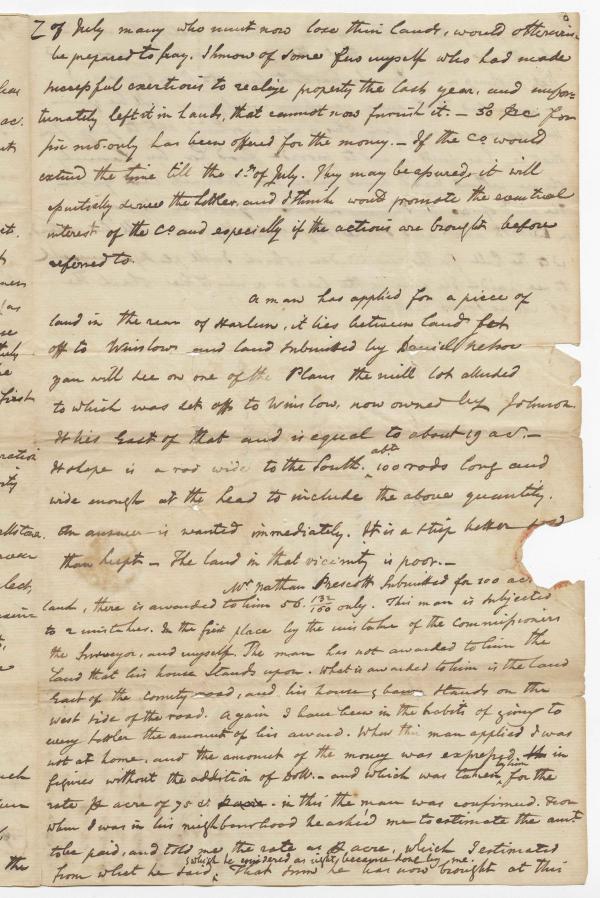 of July many who must now lose their lands, would otherwise
be prepared to pay. I know of some few myself who had made
successful exertions to realize property the last year, and unfor-
tunately left it in lands, that cannot now furnish it. — 50 pc for
six mo. only has been offered for the money. — If the Co. would
extend the time till the 1st. of July. They may be assured, it will
essentially serve the settler, and I think would promote the eventual
interest of the Co. and especially if the actions are brought before
referred to.
A man has applied for a piece of
land in the rear of Harlem, it lies between land set
off to Winslow and land submitted by Daniell Nelson
you will see on one of the Plans the mill lot alluded
to which was set off to Winslow, now owned by Johnson.
It lies East of that and is equal to about 19 acs. —
Its shape is a rod wide to the South. abt. 100 rods long and
wide enough at the head to include the above quantity.
An answer is wanted immediately. It is a strip better sold
than kept — The land in that vicinity is poor. —
Mr. Nathan Prescott Submitted for 100 acs
land, there is awarded to him 56. 132/160 only. This man is subjected
to 2 mistakes. In the first place by the mistake of the Commissioners
the Surveyor, and myself. The man has not awarded to him the
Land that his house Stands upon. What is awarded to him is the land
East of the County road, and his house & barn stands on the
west side of the road. Again I have been in the habits of giving to
every settler the amount of his award. When this man applied I was
not at home, and the amount of the money was expressed in
figures without the addition of Dolls. — and which was taken by him for the
rate pr acre of 75 in this the man was confirmed. &
when I was in his neighbourhood he asked me to estimate the amt.
to be paid, and told me the rate as pr acre, which I estimated
from what he said, & which he considered as right, because done by me. That sum he has now brought at this